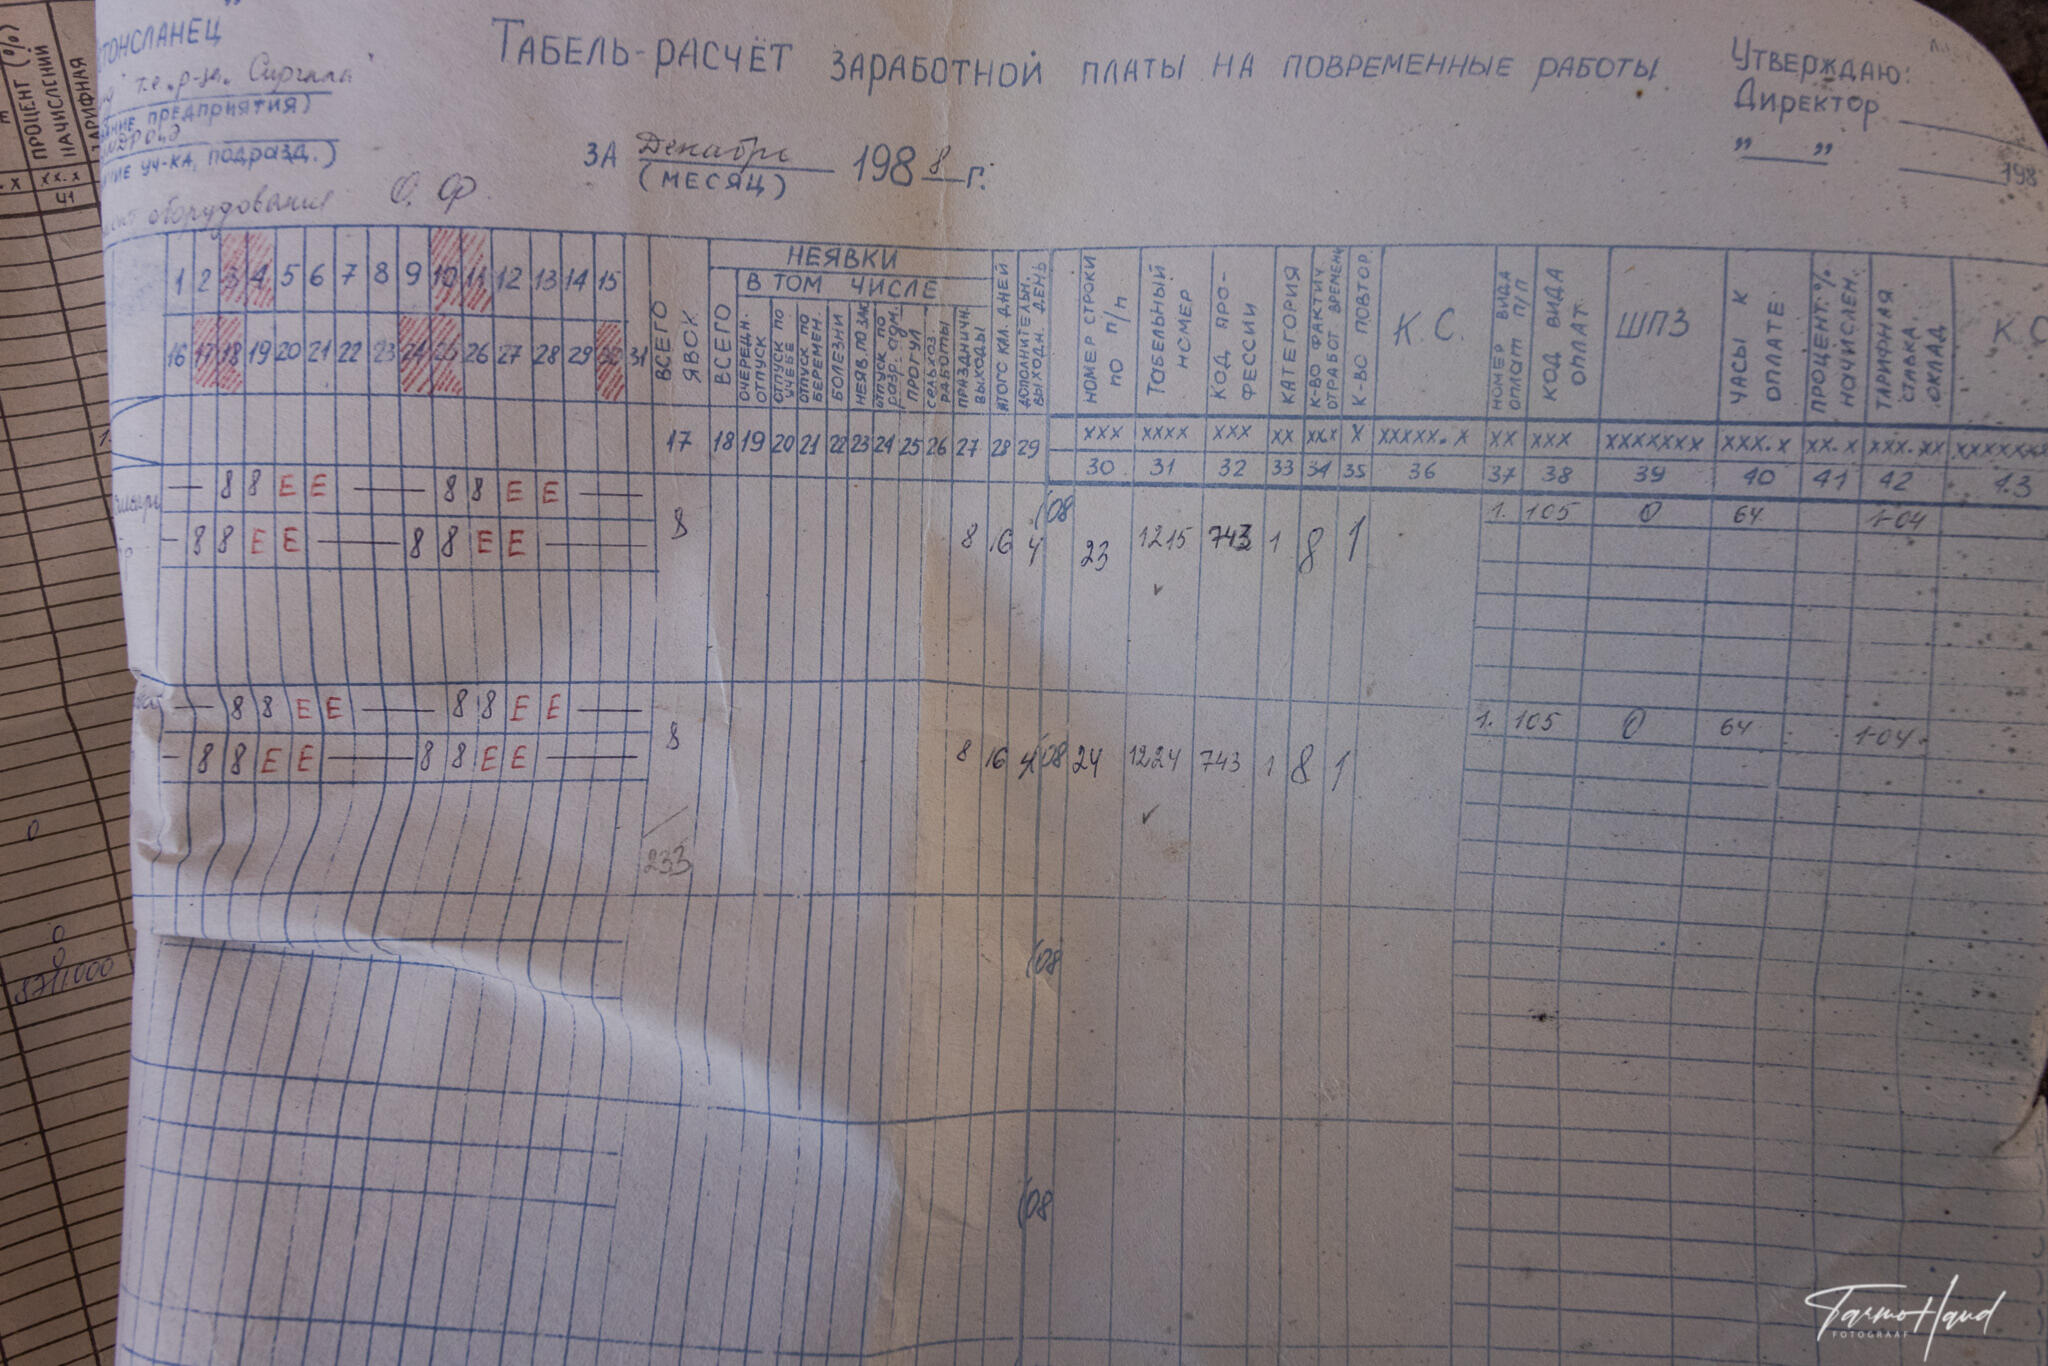 ПРОЦЕНТ (%)
НАЧИСЛЕНИЙ
ТАРИФНАЯ
хх.х
41
0
0
0
871000
ТОНСЛАНЕЦ"
т.е. р-за „Сиргала"
ПРЕДПРИЯТИЯ)
УЧ-КА, ПОДРАЗД.)
оборудование О. Ф.
ТАБЕЛЬ-РАСЧЁТ ЗАРАБОТНОЙ ПЛАТЫ НА ПОВРЕМЕННЫЕ РАБОТЫ
ЗА Декабрь 1988 г.
(МЕСЯЦ)
УТВЕРЖДАЮ:
ДИРЕКТОР
" "
198
1 2 3 4 5 6 7 8 9 10 11 12 13 14 15
16 17 18 19 20 21 22 23 24 25 26 27 28 29 30 31
ВСЕГО ЯВОК
НЕЯВКИ
ВСЕГО
В ТОМ ЧИСЛЕ
ОЧЕРЕД. ОТПУСК
ОТПУСК ПО УЧЕБЕ
ОТПУСК ПО БЕРЕМЕН.
БОЛЕЗНИ
НЕЯВ. ПО ЗАК.
ОТПУСК ПО РАЗР. АДМ.
ПРОГУЛ
СЕЛЬХОЗ. РАБОТЫ
ПРАЗДНИЧН. ВЫХОДЫ
ИТОГО КАЛ. ДНЕЙ
ДОПОЛНИТЕЛЬН. ВЫХОДН. ДЕНЬ
НОМЕР СТРОКИ ПО П/П
ТАБЕЛЬНЫЙ НОМЕР
КОД ПРО-ФЕССИИ
КАТЕГОРИЯ
К-ВО ФАКТИЧ. ОТРАБОТ ВРЕМЕНИ
К-ВО ПОВТОР.
К.С.
НОМЕР ВИДА ОПЛАТ П/П
КОД ВИДА ОПЛАТ
ШПЗ
ЧАСЫ К ОПЛАТЕ
ПРОЦЕНТ.% НАЧИСЛЕН.
ТАРИФНАЯ СТАВКА, ОКЛАД
К.С
ххх хххх ххх хх хх.х х ххххх.х хх ххх ххххххх ххх.х хх.х ххх.хх ххххххх
17 18 19 20 21 22 23 24 25 26 27 28 29 30 31 32 33 34 35 36 37 38 39 40 41 42 43
— 8 8 Е Е — 8 8 Е Е — (08 1. 105 0 64 1-04
— 8 8 Е Е — 8 8 Е Е — 8 8 16 4 23 1215 743 1 8 1
— 8 8 Е Е — 8 8 Е Е — 1. 105 0 64 1-04
— 8 8 Е Е — 8 8 Е Е — 8 8 16 4 (08 24 1224 743 1 8 1
233
(08
(08
Tarmo Haud
FOTOGRAAF